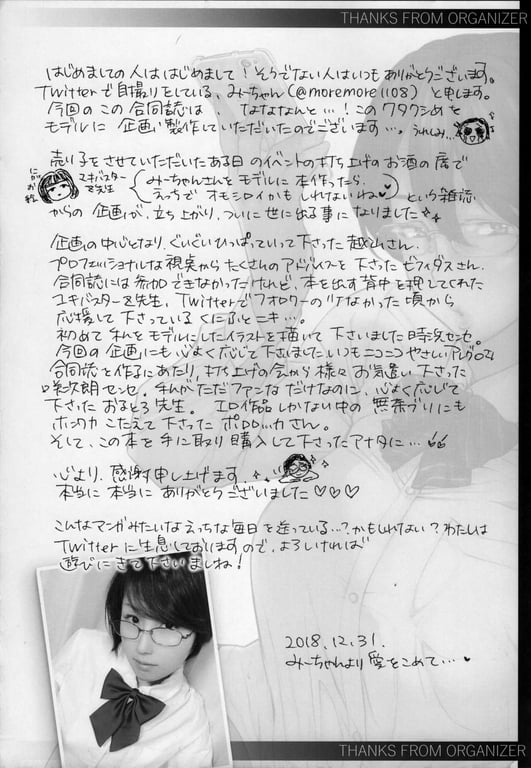 THANKS FROM ORGANIZER
はじめましての人ははじめまして！そうでない人はいつもありがとうございます。
Twitterで自撮りをしている、みーちゃん(@moremore1108)と申します。
今回のこの合同誌は、なななんと…！このワタクシめを
モデルに企画・製作していただいたのでございます…。うれしみ…
売り子をさせていただいたある日のイベントの打ち上げのお酒の席で
にがお絵
ユキバスターZ先生
みーちゃんさんをモデルに本作ったら、
えっちでオモシロイかもしれないね♡
という雑談
からの企画が、立ち上がり、ついに世に出る事になりました
企画の中心となり、ぐいぐいひっぱっていって下さった越山さん。
プロフェッショナルな視点からたくさんのアドバイスを下さったゼフィダスさん。
合同誌には参加できなかったけれど、本を出す背中を押してくれた
ユキバスターZ先生。Twitterでフォロワーの少なかった頃から
応援して下さっているくにふとニキ…。
初めて私をモデルにしたイラストを描いて下さいました時浜センセ。
今回の企画にも心よく応じて下さいました、いつもニコニコやさしい
合同誌を作るにあたり、打ち上げの会から様々お気遣い下さった
次朗センセ。私がただファンなだけなのに、心よく応じて
下さったおるとろ先生。エロ作品しかない中の無茶ブリにも
ホンワカこたえて下さったポロッカさん。
そして、この本を手に取り購入して下さったアナタに…
心より、感謝申し上げます。
本当に本当にありがとうございました♡♡♡
こんなマンガみたいなえっちな毎日を送っている…？かもしれない？わたしは
Twitterに生息しておりますので、よろしければ
遊びにきて下さいましね！
2018.12.31.
みーちゃんより愛をこめて…♥
THANKS FROM ORGANIZER